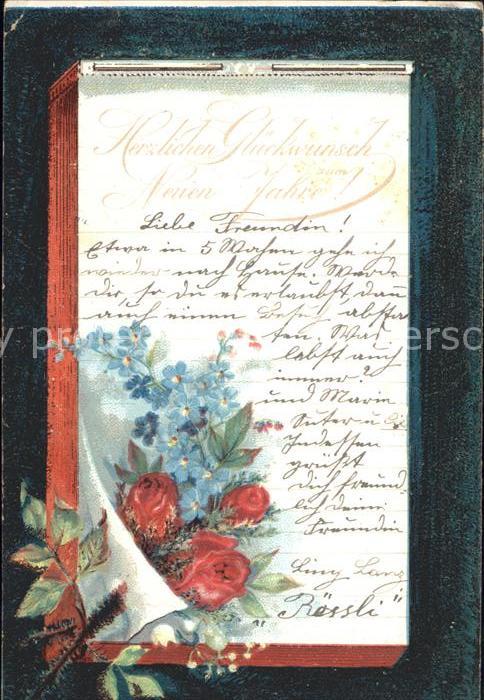 Herzlichen Glückwunsch
zum
Neuen Jahre!
Liebe Freundin!
Etwa in 5 Wochen gehe ich
wieder nach Hause. Werde
dir, so du es erlaubst, dann
auch einen Besuch abstat
ten. Was
labst auch
immer?
und Marie
Suter u.
Indessen
grüßt
dich freund
lich deine
Freundin
Lang
"Rössli"